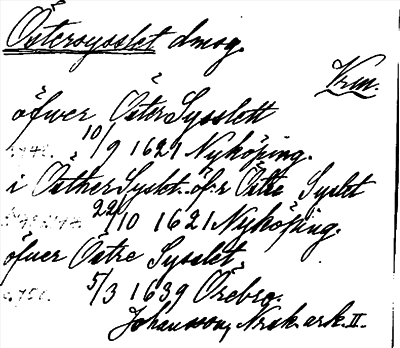 Östersysslet dmsg.
Vrm.
öfwer Öster Sysslett
10/9 1621 Nyköping.
i Östher Sysbt. öf:r Östre Syslet
22/10 1621 Nyköping.
öfuer Östre Sysslet.
5/3 1639 Örebro.
Johansson, Nrsk ark. II.